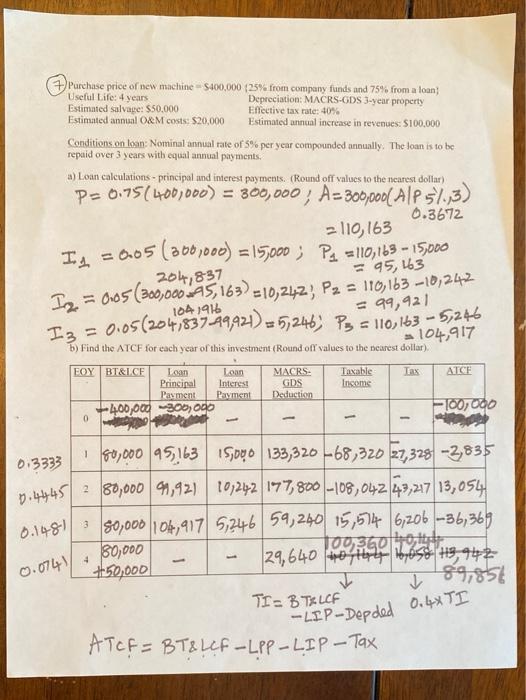 7 Purchase price of new machine = $400,000 {25% from company funds and 75% from a loan}
Useful Life: 4 years Depreciation: MACRS-GDS 3-year property
Estimated salvage: $50,000 Effective tax rate: 40%
Estimated annual O&M costs: $20,000 Estimated annual increase in revenues: $100,000
Conditions on loan: Nominal annual rate of 5% per year compounded annually. The loan is to be
repaid over 3 years with equal annual payments.
a) Loan calculations - principal and interest payments. (Round off values to the nearest dollar)
P = 0.75(400,000) = 300,000 ; A = 300,000(A|P 5%,3)
0.3672
= 110,163
I1 = 0.05 (300,000) = 15,000 ; P1 = 110,163 - 15,000
= 95,163
204,837
I2 = 0.05(300,000 - 95,163) = 10,242 ; P2 = 110,163 - 10,242
= 99,921
104,916
I3 = 0.05(204,837 - 99,921) = 5,246 ; P3 = 110,163 - 5,246
= 104,917
b) Find the ATCF for each year of this investment (Round off values to the nearest dollar).
EOY BT&LCF Loan Principal Payment Loan Interest Payment MACRS-GDS Deduction Taxable Income Tax ATCF
0 -400,000 -300,000 - - - - -100,000
0.3333 1 80,000 95,163 15,000 133,320 -68,320 -27,328 -2,835
0.4445 2 80,000 99,921 10,242 177,800 -108,042 -43,217 13,054
0.1481 3 80,000 104,917 5,246 59,240 15,514 6,206 -36,369
0.0741 4 80,000 +50,000 - - 29,640 100,360 40,144 40,144 16,058 113,942 89,856
TI = BT&LCF 0.4xTI
-LIP-Depded
ATCF = BT&LCF - LPP - LIP - Tax